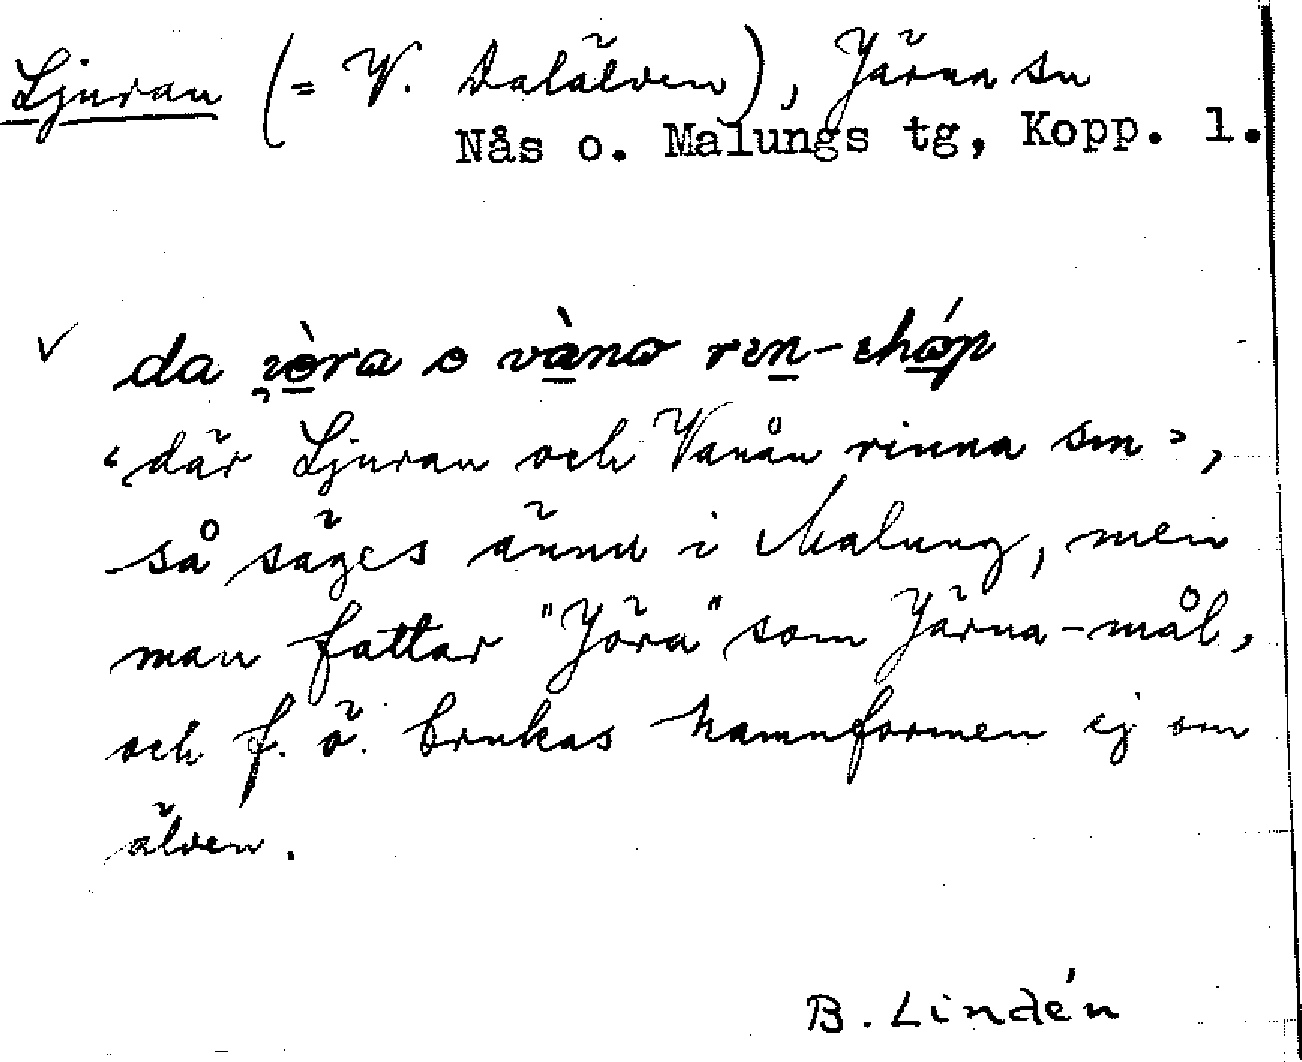 Ljuran (= V. Dalälven), Järna sn
Nås o. Malungs tg, Kopp. l.
da o vàna
‘där Ljuran och Vanån rinna sm’,
så säges ännu i Malung, men
man fattar "Jöra" som Järna-mål,
och f. ö. brukas namnformen ej om
älven.
B. Lindén